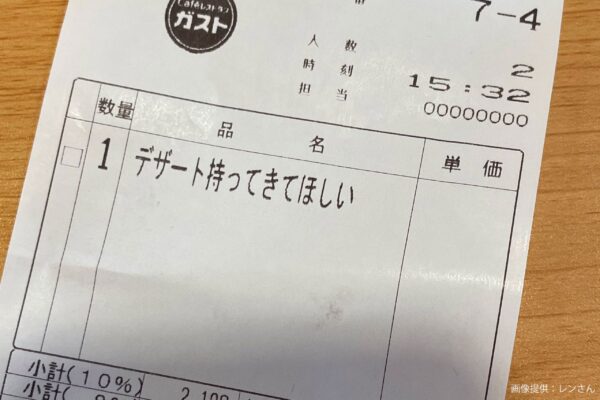 Caféレストラン
ガスト
7-4
人数 2
時刻 15:32
担当 00000000
数量 品名 単価
1 デザート持ってきてほしい
小計(10%)
小計(
画像提供：レンさん